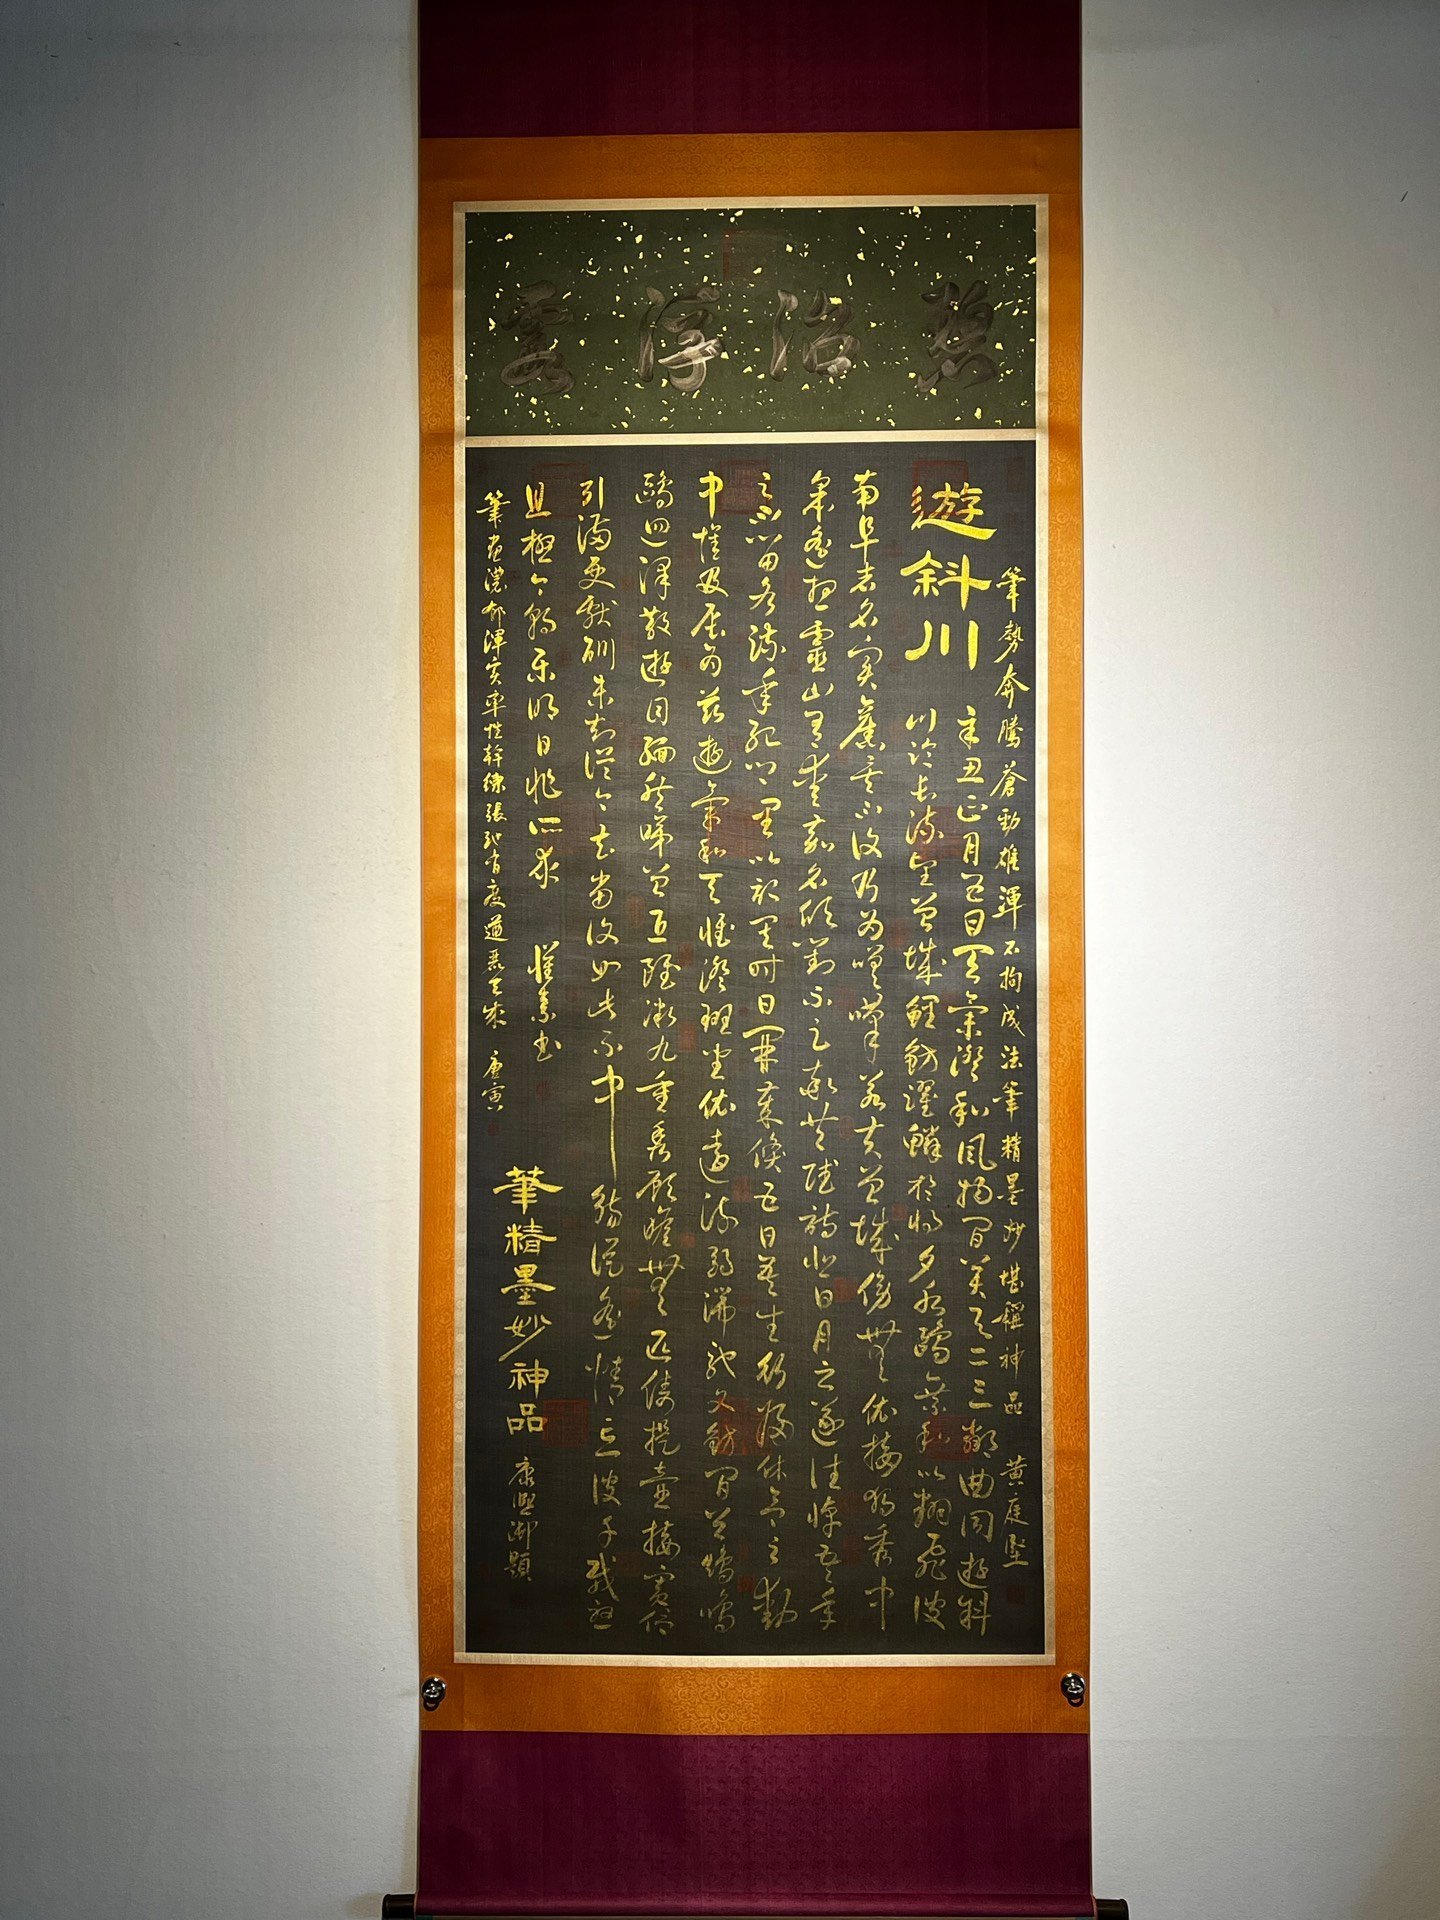 治浮
筆勢奔騰蒼勁雄渾不拘成法筆精墨妙堪稱神品 黃庭堅
遊斜川
辛丑正月五日天氣澄和風物閒美與二三鄰曲同遊斜
川臨長流望曾城鯉魴躍鱗於將夕水鷗乘和以翻飛彼
南阜者名實舊矣不復乃為嗟嘆若夫曾城傍無依接獨秀中
皋遙想靈山有愛嘉名欣對不足率共賦詩悲日月之遂往悼吾年
之不留各疏年紀鄉里以記其時日開歲倏五日吾生行歸休念之動
中懷及辰為茲遊氣和天惟澄班坐依遠流弱湍馳文魴閒谷矯鳴
鷗迥澤散遊目緬然睇曾丘雖微九重秀顧瞻無匹儔提壺接賓侶
引滿更獻酬未知從今去當復如此不中觴縱遙情忘彼千載憂
且極今朝樂明日非所求 懷素書
筆畫濃郁渾實率性幹練張弛有度遒麗天成 唐寅
筆精墨妙神品 康熙御題